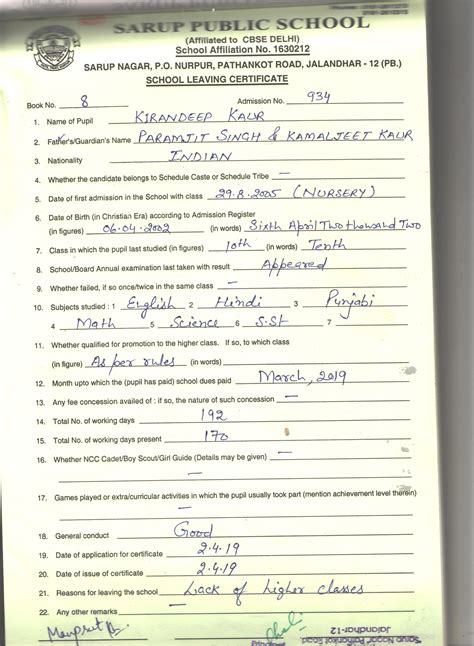 SARUP PUBLIC SCHOOL
(Affiliated to CBSE DELHI)
School Affiliation No. 1630212
SARUP NAGAR, P.O. NURPUR, PATHANKOT ROAD, JALANDHAR - 12 (PB.)
SCHOOL LEAVING CERTIFICATE
Book No. 8 Admission No. 934
1. Name of Pupil KIRANDEEP KAUR
2. Father's/Guardian's Name PARAMJIT SINGH & KAMALJEET KAUR
3. Nationality INDIAN
4. Whether the candidate belongs to Schedule Caste or Schedule Tribe —
5. Date of first admission in the School with class 29.8.2005 (NURSERY)
6. Date of Birth (in Christian Era) according to Admission Register
(in figures) 06.04.2002 (in words) Sixth April Two thousand Two
7. Class in which the pupil last studied (in figures) 10th (in words) Tenth
8. School/Board Annual examination last taken with result Appeared
9. Whether failed, if so once/twice in the same class —
10. Subjects studied : 1 English 2 Hindi 3 Punjabi
4 Math 5 Science 6 S.St 7
11. Whether qualified for promotion to the higher class. If so, to which class
(in figure) As per rules (in words)
12. Month upto which the (pupil has paid) school dues paid March, 2019
13. Any fee concession availed of : if so, the nature of such concession —
14. Total No. of working days 192
15. Total No. of working days present 170
16. Whether NCC Cadet/Boy Scout/Girl Guide (Details may be given) —
17. Games played or extra/curricular activities in which the pupil usually took part (mention achievement level therein)
—
18. General conduct Good
19. Date of application for certificate 2.4.19
20. Date of issue of certificate 2.4.19
21. Reasons for leaving the school Lack of higher classes
22. Any other remarks —
Jalandhar-12